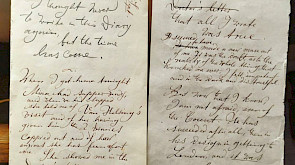 I thought never
to write in this Diary
again, but the time
has come.
When I got home tonight
Mina had supper ready,
and when we had supped
she told me of Van Helsing's
visit and of his having
given him the two Diaries
copied out and of how
anxious she has been about
me. She shows me in the
Doctor's letter
that all I wrote
was true
made a new man out
of me. It was the doubt as to the
reality of the whole thing that
knocked me over. I felt
in the dark
But now that I know I
am not afraid even of
the Count. He has
succeeded after all then in
his design in getting to
London, and it was